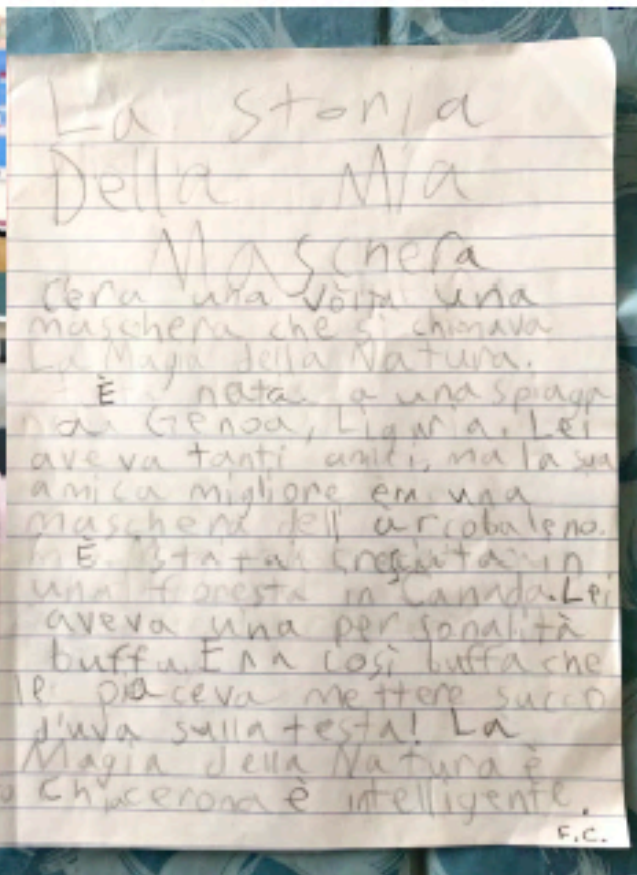 La storia
Della Mia
Maschera
C'era una volta una
maschera che si chimava
La Magia della Natura.
È nata a una spiagga
a Genoa, Liguria. Lei
aveva tanti amici, ma la sua
amica migliore era una
maschera dell'arcobaleno.
È stata cresciuta in
una foresta in Canada. Lei
aveva una personalità
buffa. Era così buffa che
le piaceva mettere succo
d'uva sulla testa! La
Magia della Natura è
chiacerona è intelligente.
F.C.